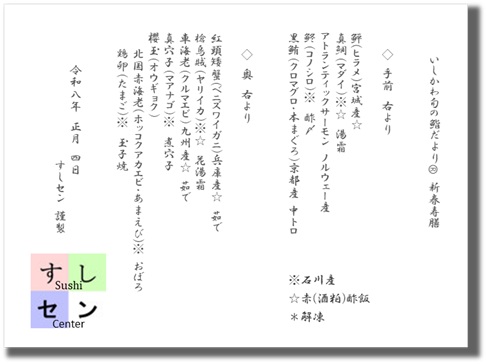 いしかわ旬の鮨だより⑳ 新春寿膳
◇ 手前 右より
鮃(ヒラメ)宮城産☆
真鯛(マダイ)※☆ 湯霜
アトランティックサーモン ノルウェー産
鮗(コノシロ)※ 酢〆
黒鮪(クロマグロ・本まぐろ)京都産 中トロ
◇ 奥 右より
紅頭矮蟹(ベニズワイガニ)兵庫産☆ 茹で
槍烏賊(ヤリイカ)※☆ 花湯霜
車海老(クルマエビ)九州産☆ 茹で
真穴子(マアナゴ)※ 煮穴子
櫻玉(オウギョク)
北国赤海老(ホッコクアカエビ・あまえび)※ おぼろ
鶏卵(たまご)※ 玉子焼
令和八年 正月 四日
すしセン 謹製
※石川産
☆赤(酒粕)酢飯
＊解凍
すし
Sushi
セン
Center